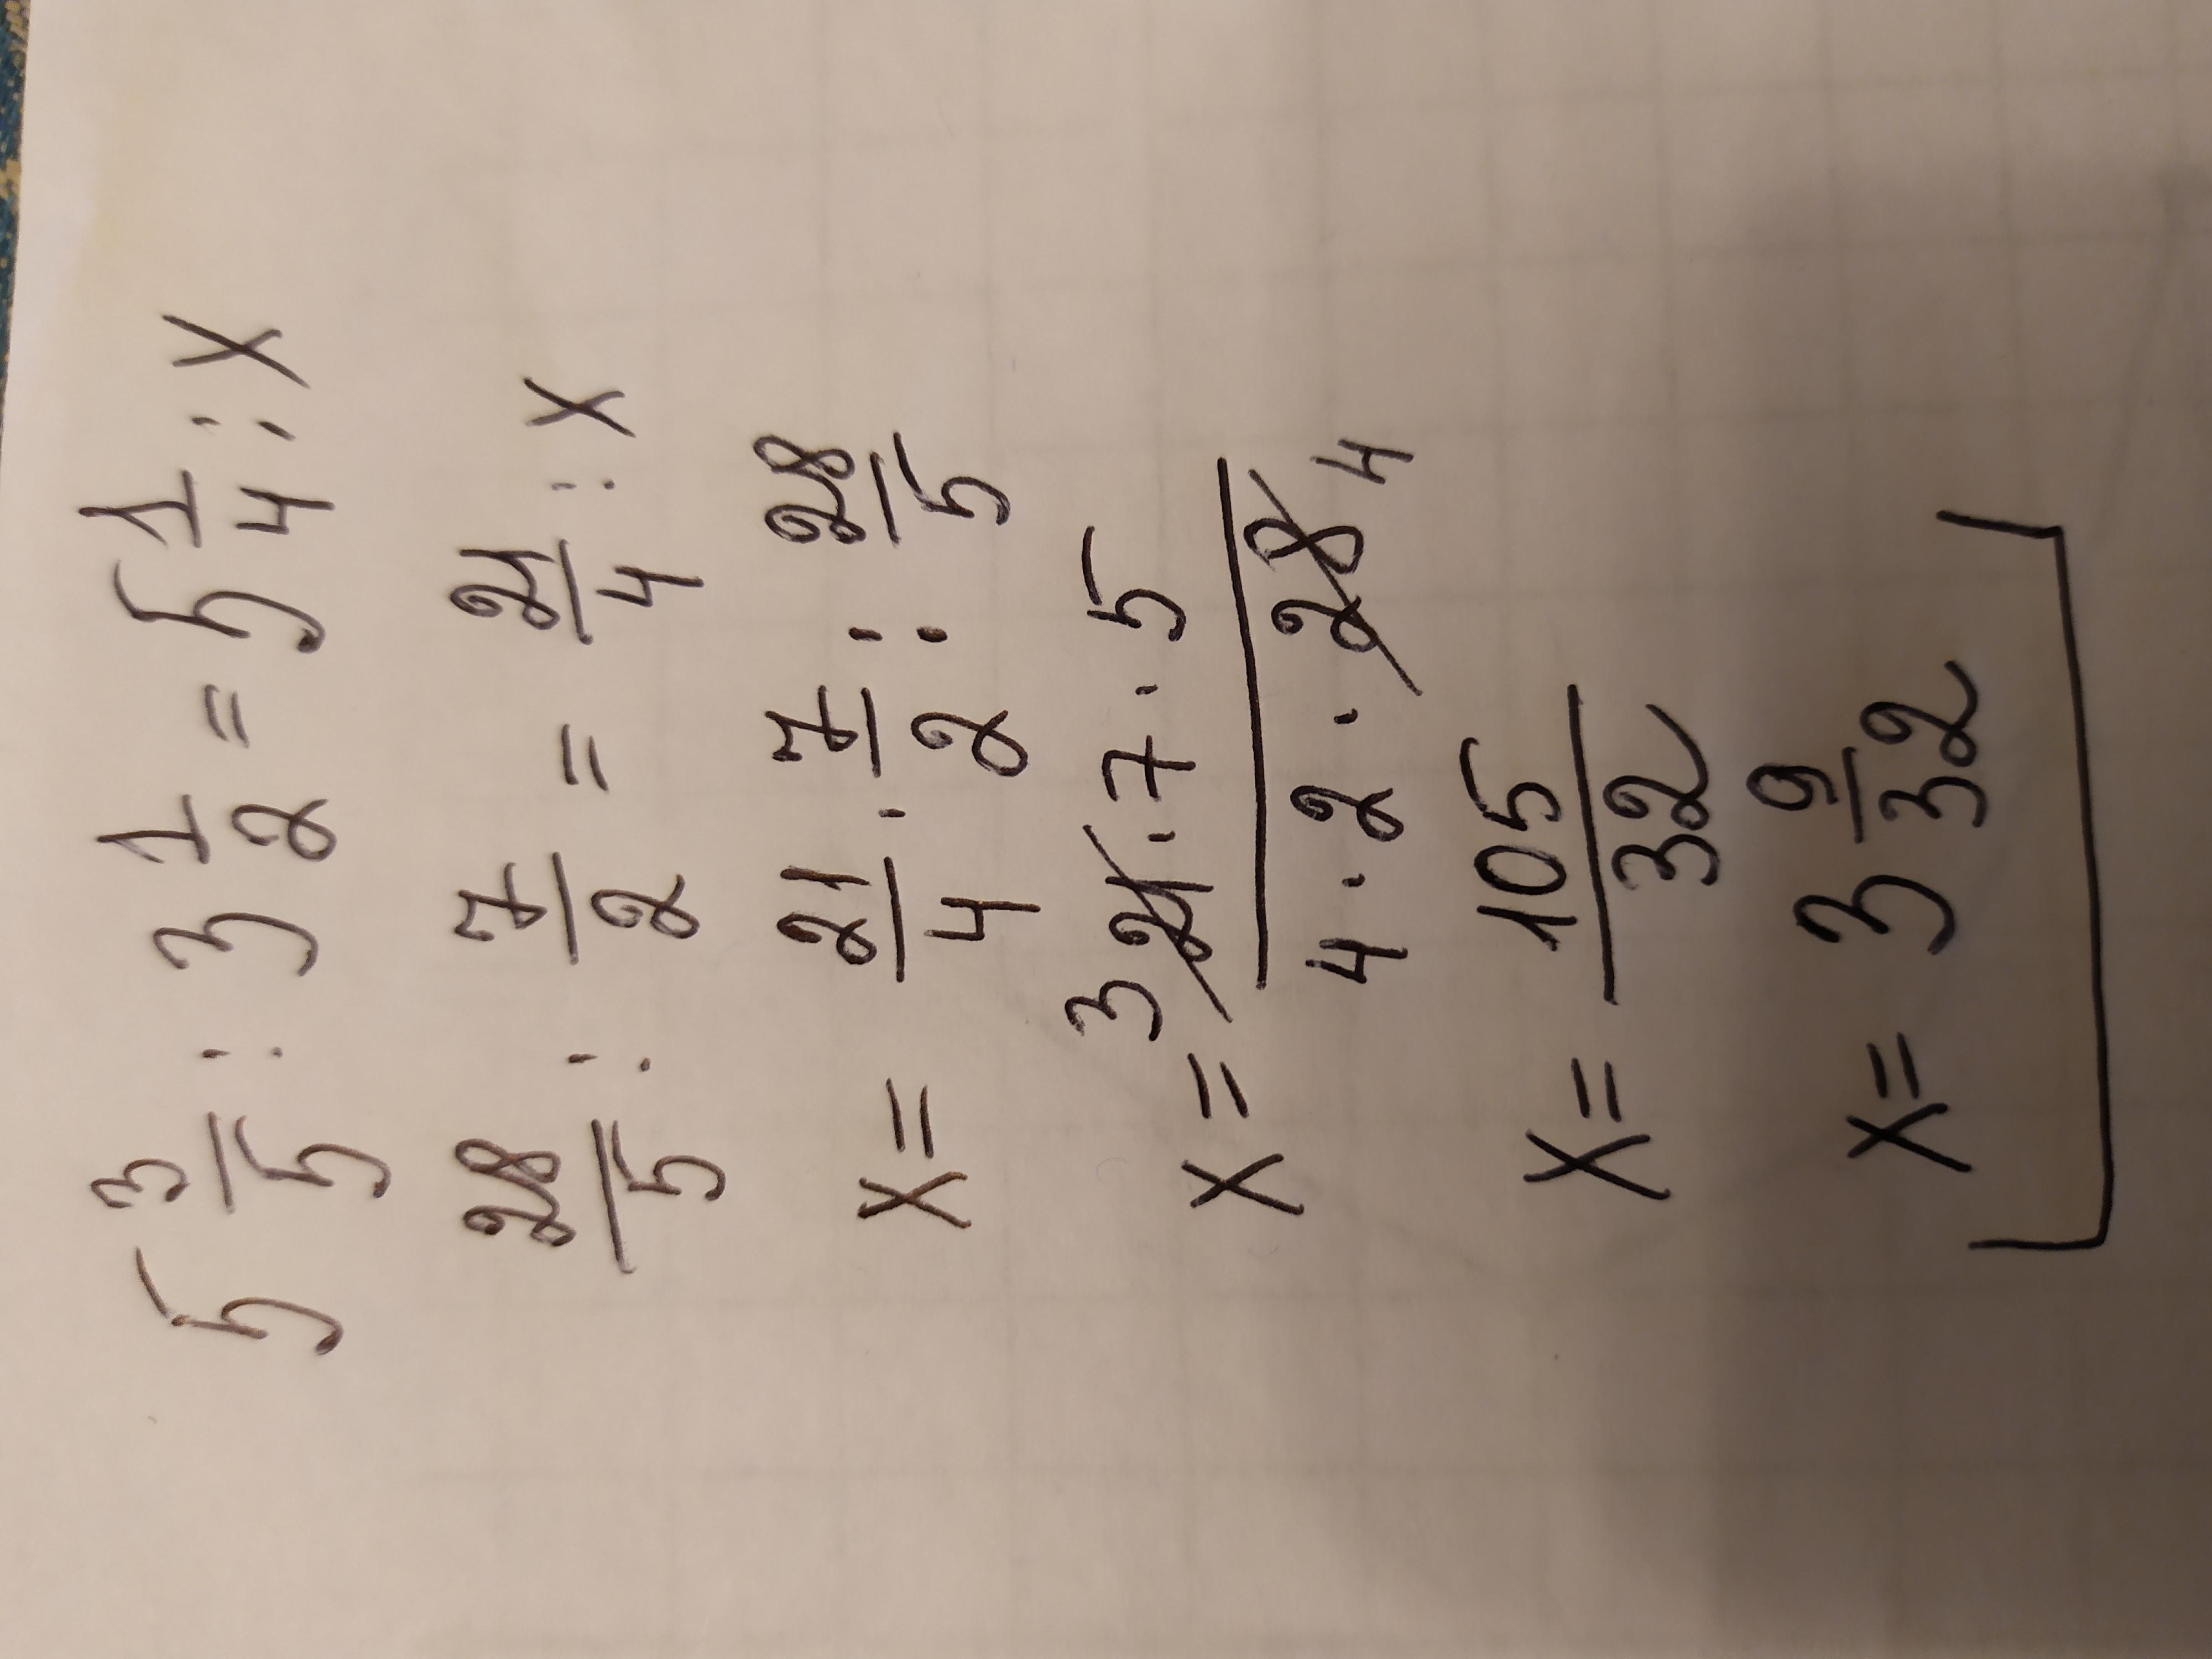 5 3/5 : 3 1/2 = 5 1/4 : x
28/5 : 7/2 = 21/4 : x
x = 21/4 · 7/2 : 28/5
x = 3 21 · 7 · 5 / 4 · 2 · 28 4
x = 105/32
x = 3 9/32